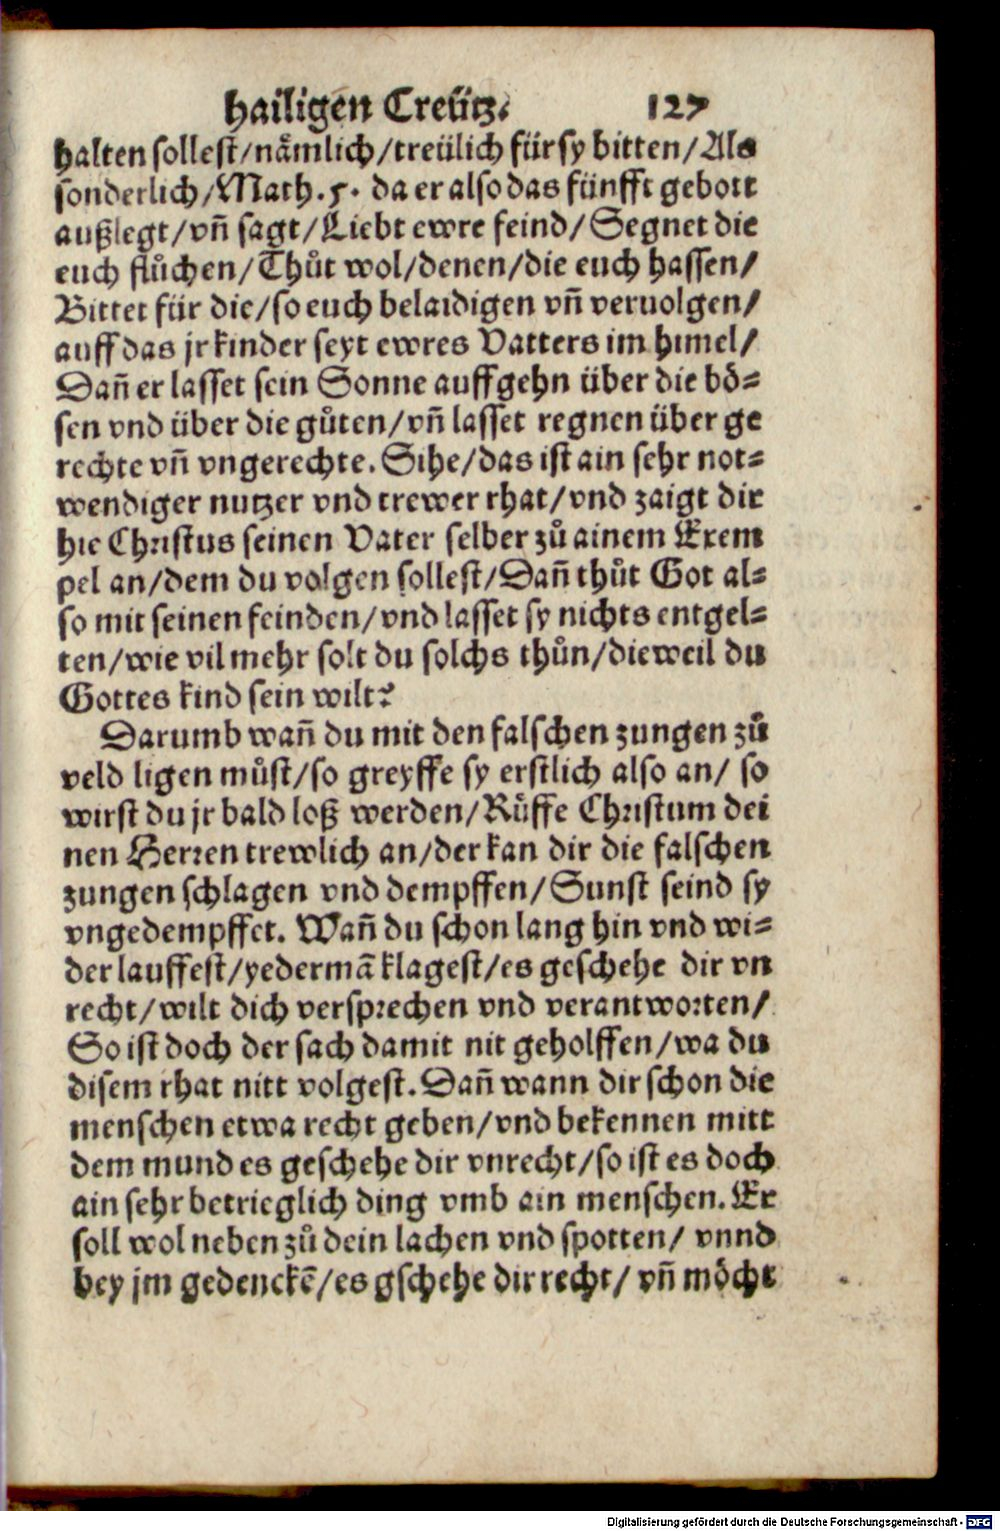 hailigen Creütz. 127
halten sollest/nämlich/treülich für sy bitten/Als
sonderlich/Math.5. da er also das fünfft gebott
außlegt/vñ sagt/Liebt ewre feind/Segnet die
euch flůchen/Thůt wol/denen/die euch hassen/
Bittet für die/so euch belaidigen vñ veruolgen/
auff das jr kinder seyt ewres Vatters im himel/
Dañ er lasset sein Sonne auffgehn über die bö-
sen vnd über die gůten/vñ lasset regnen über ge
rechte vñ vngerechte. Sihe/das ist ain sehr not-
wendiger nutzer vnd trewer rhat/vnd zaigt dir
hie Christus seinen Vater selber zů ainem Exem
pel an/dem du volgen sollest/Dañ thůt Got al-
so mit seinen feinden/vnd lasset sy nichts entgel-
ten/wie vil mehr solt du solchs thůn/dieweil du
Gottes kind sein wilt?
Darumb wañ du mit den falschen zungen zů
veld ligen můst/so greyffe sy erstlich also an/ so
wirst du jr bald loß werden/Rüffe Christum dei
nen Herren trewlich an/der kan dir die falschen
zungen schlagen vnd dempffen/Sunst seind sy
vngedempffet. Wañ du schon lang hin vnd wi-
der lauffest/yedermā klagest/es geschehe dir vn
recht/wilt dich versprechen vnd verantworten/
So ist doch der sach damit nit geholffen/wa du
disem rhat nitt volgest. Dañ wann dir schon die
menschen etwa recht geben/vnd bekennen mitt
dem mund es geschehe dir vnrecht/so ist es doch
ain sehr betrieglich ding vmb ain menschen. Er
soll wol neben zů dein lachen vnd spotten/ vnnd
bey jm gedenckē/es gschehe dir recht/ vñ möcht
Digitalisierung gefördert durch die Deutsche Forschungsgemeinschaft - DFG